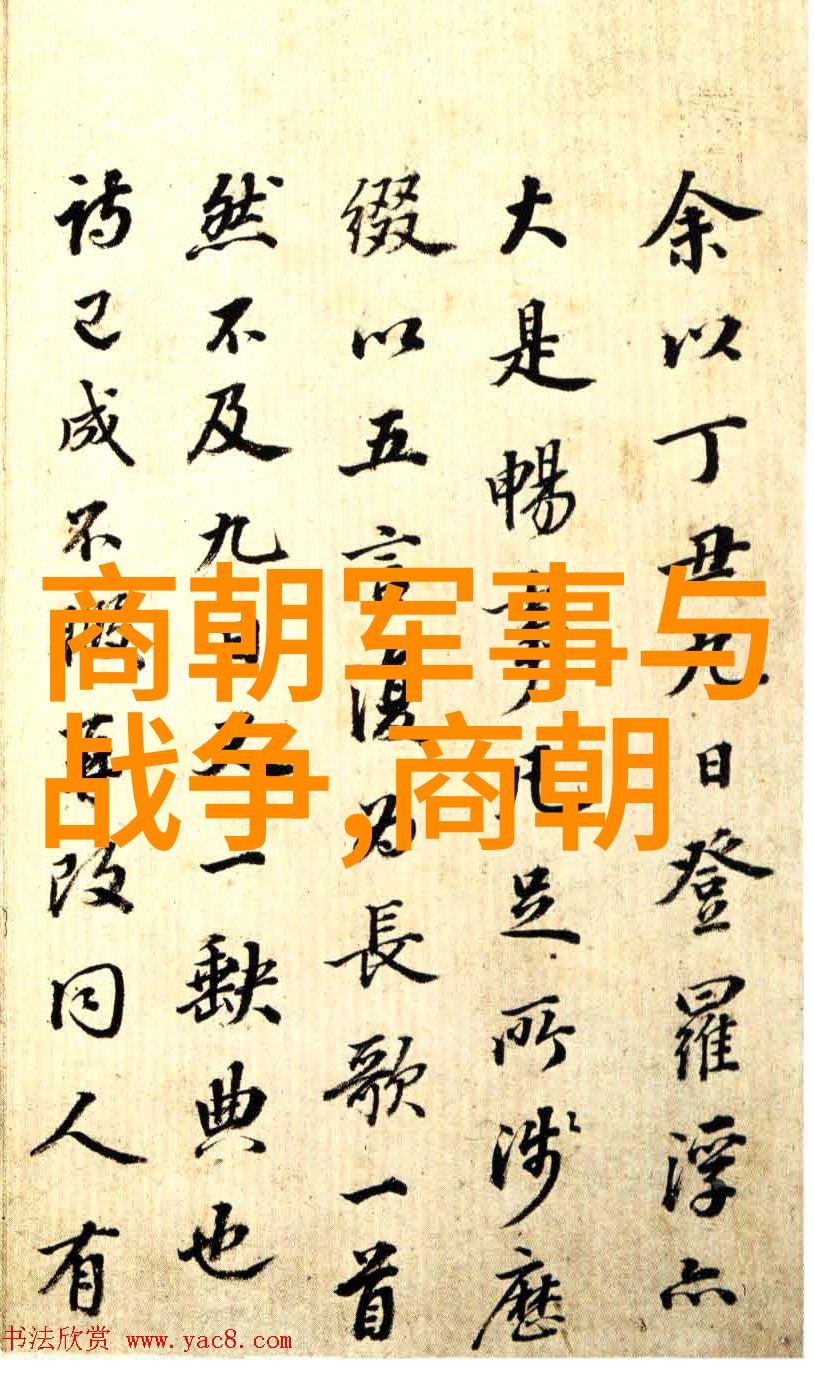 余以丁丑九日登羅浮亦
大是暢事凡足所涉歷
綴以五言復為長歌一首
然不及九日一缺典也
詩已成不暇再改同人有
商朝军事与
战争,商朝
书法欣赏 www.yac8.com